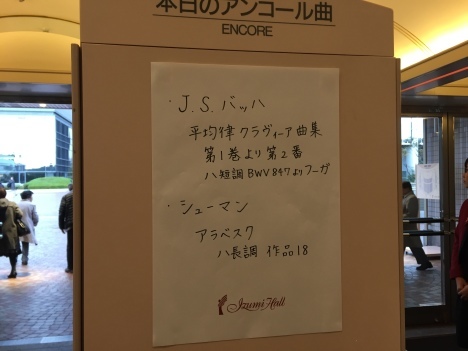 本日のアンコール曲
ENCORE
・J.S.バッハ
平均律クラヴィーア曲集
第1巻より第2番
ハ短調BWV847よりフーガ
・シューマン
アラベスク
ハ長調 作品18
Izumi Hall